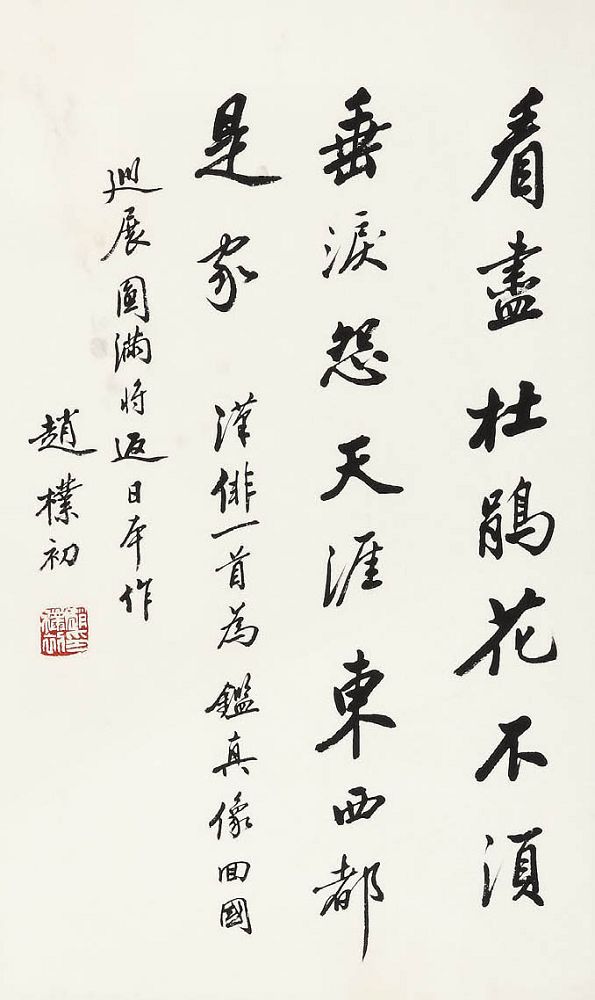 看盡杜鵑花不須
垂淚怨天涯東西都
是家 漢俳一首為鑑真像回國
巡展圓滿將返日本作
趙樸初
趙樸初印